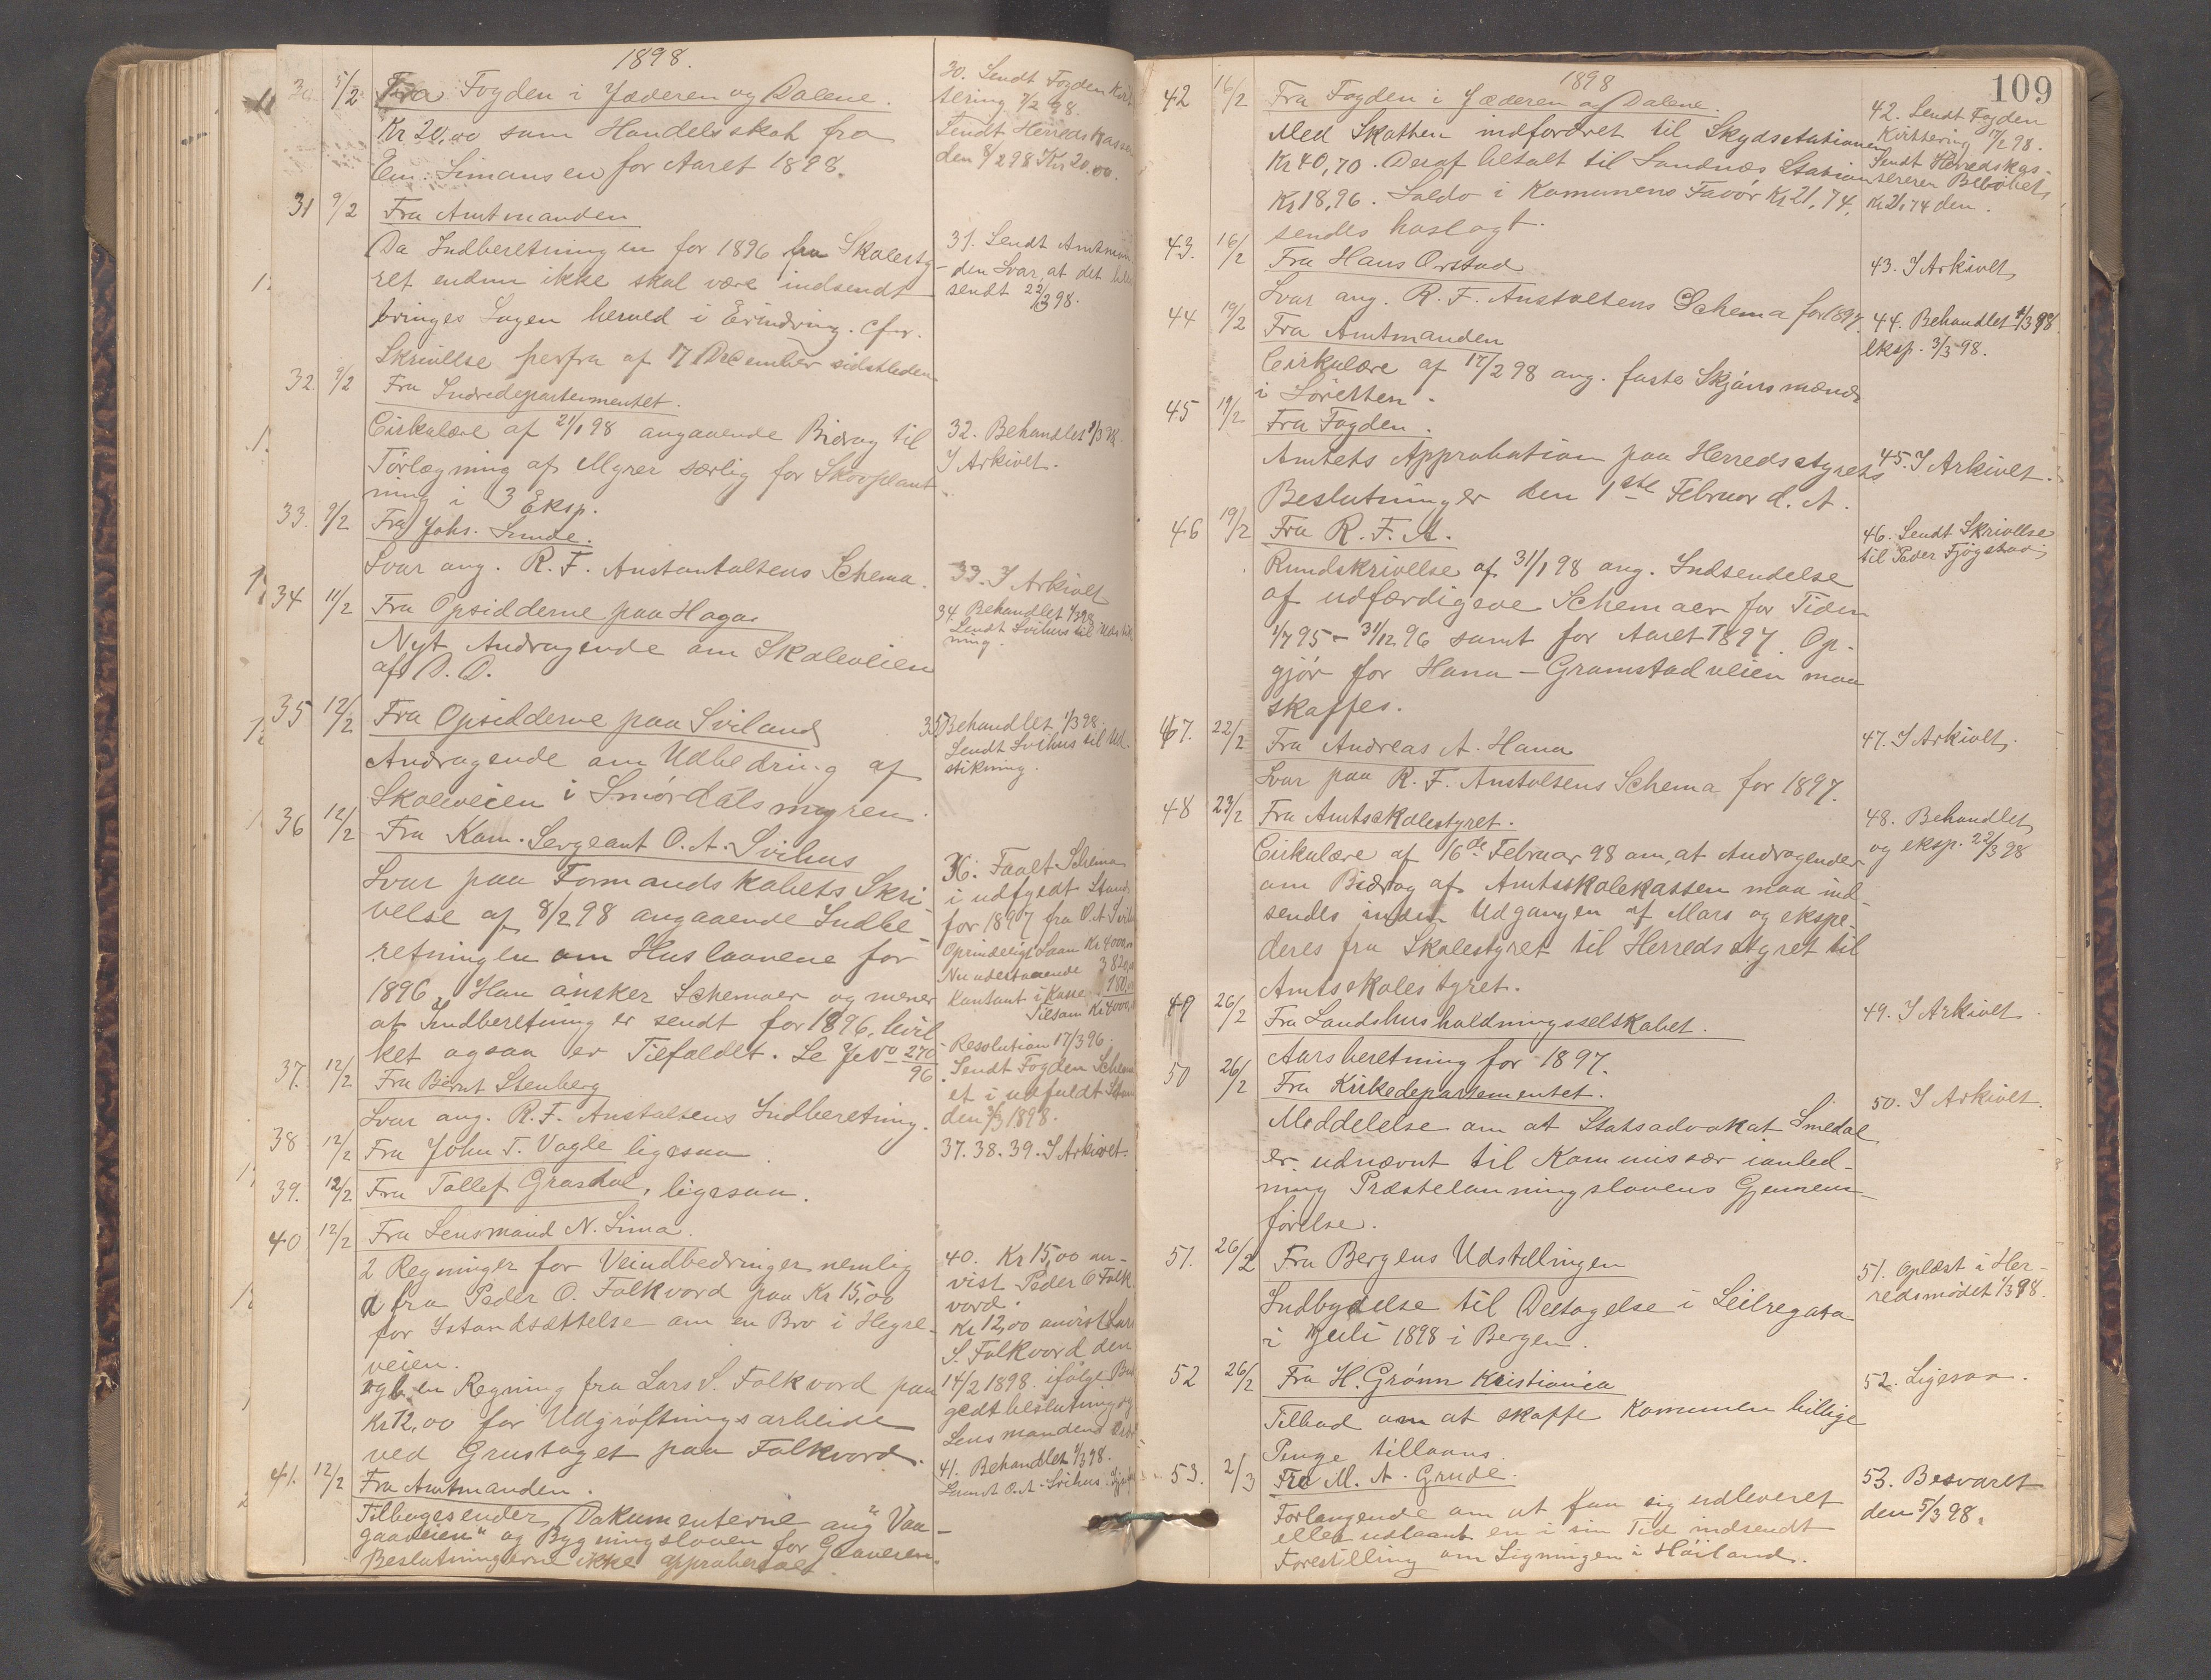 1898.
30. 5/2 Fra Fogden i Jæderen og Dalene.
Kr 20,00 som Handelsskat fra
Em. Simonsen for Aaret 1898.
30. Sendt Fogden Kvit-
tering 7/2 98.
Sendt Herredskassen
den 8/2 98 Kr. 20.00.
31 9/2 Fra Amtmanden
Da Indberetningen for 1896 fra Skolesty-
ret endnu ikke skal være indsendt
bringes Sagen herved i Erindring. cfr.
Skrivelse herfra af 17 December sidstleden
31. Sendt Amtman
den Svar, at det blev
sendt 22/3 98.
32. 9/2 Fra Indredepartementet.
Cirkulære af 21/1 98 angaaende Bidrag til
Tørlægning af Myrer særlig for Skovplant-
ning i 3 Eksp.
32. Behandlet 1/3 98.
I Arkivet.
33. 9/2 Fra Johs. Lunde.
Svar ang. R. F. Anstantaltens Schema.
33. I Arkivet
34 11/2 Fra Opsidderne paa Hogas
Nyt Andragende om Skoleveien
af D. D.
34. Behandlet 1/3 98
Sendt Svihus til Udstik
ning.
35 12/2 Fra Opsidderne paa Sviland
Andragende om Udbedring af
Skoleveien i Smørdalsmyren.
35. Behandlet 1/3 98.
Sendt Svihus til Ud-
stikning.
36 12/2 Fra Kom. Sergeant O. A. Svihus
Svar paa Formandskabets Skri-
velse af 8/2 98 angaaende Indbe-
retningen om Huslaanene for
1896. Han ønsker Schemaer og mener
at Indberetning er sendt for 1896, hvil-
ket ogsaa er Tilfældet. Se J. No 270/96
36. Faaet Schema
i udfyldt Stand
for 1897 fra O. A. Svihus
Oprindeligt Laan Kr 4000,00
Nu udestaaende 3820,00
Kontant i Kasse 180,00
Tilsam Kr 4000,00
Resolution 17/3 96.
Sendt Fogden Schem
et i udfyldt Stan
den 3/3 1898.
37. 12/2 Fra Bernt Stenberg
Svar ang. R. F. Anstaltens Indberetning.
38 12/2 Fra John T. Vagle ligesaa.
39. 12/2 Fra Tollef Grasdal, ligesaa.
37. 38. 39. I Arkivet.
40 12/2 Fra Lensmand N. Sima.
2 Regninger for Veiudbedringer nemlig
a fra Peder O. Folkvord paa Kr 15,00
for Istandsættelse om en Bro i Hegre-
veien.
og b en Regning fra Lars S. Folkvord paa
Kr 12,00 for Udgrøftningsarbeide
ved Grustaget paa Folkvord.
40. Kr 15,00 an-
vist Peder O Folk
vord.
Kr 12,00 anvist Lars
S. Folkvord den
14/2 1898 ifølge Bud
gedtbeslutning og
Lensmandens
41. 12/2 Fra Amtmanden.
Tilbagesender Dokumenterne ang „Vaa-
gaaveien" og Bygningsloven for Gaaveien.
Beslutningerne ikke approberedes.
41. Behandlet 1/3 98.
Sendt O. A. Svihus
109
1898
42 16/2 Fra Fogden i Jæderen og Dalene.
Med Skatten indfordret til Skydsstationen
Kr 40,70. Deraf betalt til Sandnæs Station
Kr 18,96. Saldo i Kommunens Favør Kr 21,74.
sendes hoslagt.
42. Sendt Fogden
Kvittering 17/2 98.
Sendt Herredskas-
sereren Beløbet
Kr 21,74 den.
43. 16/2 Fra Hans Orstad
Svar ang. R. F. Anstaltens Schema for 1897.
43. I Arkivet
44 19/2 Fra Amtmanden
Cirkulære af 17/2 98 ang. faste Skjønsmænd
i Søretten.
44. Behandlet 1/3 98
eksp. 3/3 98.
45 19/2 Fra Fogden.
Amtets Approbation paa Herredsstyrets
Beslutninger den 1ste Februar d. A.
45. I Arkivet.
46 19/2 Fra R. F. A.
Rundskrivelse af 31/1 98 ang. Indsendelse
af udfærdigede Schemaer for Tiden
1/7 95 - 31/12 96 samt for Aaret 1897. Op-
gjør for Hana - Gramstadveien maa
skaffes.
46. Sendt Skrivelse
til Peder Fjøgstad
47. 22/2 Fra Andreas A. Hana
Svar paa R. F. Anstaltens Schema for 1897.
47. I Arkivet.
48 23/2 Fra Amtsskolestyret.
Cirkulære af 16de Februar 98 om, at Andragender
om Bidrag af Amtsskolekassen maa ind-
sendes inden Udgangen af Mars og ekspe-
deres fra Skolestyret til Herredsstyret til
Amtsskolestyret.
48. Behandlet
og eksp. 22/3 98
49 26/2 Fra Landshusholdningsselskabet.
Aarsberetning for 1897.
49. I Arkivet
50 26/2 Fra Kirkedepartementet.
Meddelelse om at Statsadvokat Smedal
er udnævnt til Kommissær ianled-
ning Præstelønningslovens Gjennem-
førelse.
50. I Arkivet.
51. 26/2 Fra Bergens Udstillingen
Indbydelse til Deltagelse i Seilregata
i Juli 1898 i Bergen.
51. Oplæst i Her-
redsmødet 1/3 98.
52 26/2 Fra H. Grønn Kristiania
Tilbud om at skaffe Kommunen billige
Penge tillaans.
52. Ligesaa.
53. 2/3 Fra M. A. Grude.
Forlangende om at faa sig udleveret
eller udlaant en i sin Tid indsendt
Forestilling om Ligningen i Høiland.
53. Besvaret
den 5/3 98.